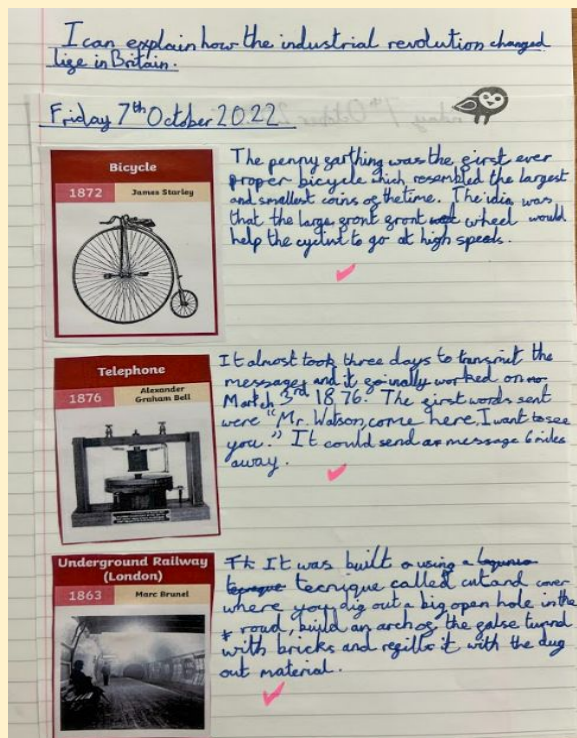 I can explain how the industrial revolution changed
life in Britain.
Friday 7th October 2022
Bicycle
1872 James Starley
The penny farthing was the first ever
proper bicycle which resembled the largest
and smallest coins of the time. The idia was
that the large front front wheel would
help the cyclist to go at high speeds.
Telephone
1876 Alexander
Graham Bell
It almost took three days to transmit the
message and it finally worked on
March 3rd 1876. The first words sent
were "Mr. Watson, come here, I want to see
you." It could send a message 6 miles
away.
Underground Railway
(London)
1863 Marc Brunel
It was built using a
tecnique called cut and cover
where you dig out a big open hole in the
road, build an arch of the false tunnel
with bricks and refill it with the dug
out material.